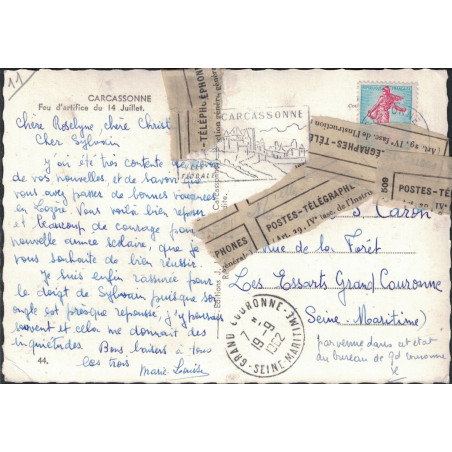 11
CARCASSONNE
Feu d'artifice du 14 Juillet.
Chère Roselyne, chère Christ
Cher Sylvain
J'ai été très contente de
de vos nouvelles et de savoir que
vous avez passé de bonnes vacances
en Lozère. Vous voilà bien reposés
et beaucoup de courage pour
nouvelle année scolaire, que je
vous souhaite de bien réussir.
Je suis enfin rassurée pour
le doigt de Sylvain puisque son
ongle est presque repoussé, j'y pensais
souvent et cela me donnait des
inquiétudes. Bons baisers à tous
les trois
Marie-Louise
44.
CARCASSONNE
-TÉLÉPHONE
EGRAPHES-TÉLÉ
(Art. 29, IVe fasc. de l'Instruction
POSTES-TÉLÉ
509
PHONES
POSTES-TÉLÉGRAPH
(Art. 29, IVe fasc. de l'Instru
S CARON
rue de la Forêt
Les Essarts Grand Couronne
Seine-Maritime)
GRAND COURONNE - SEINE MARITIME
7 H
19-9
1962
parvenue dans cet état
au bureau de Gd Couronne